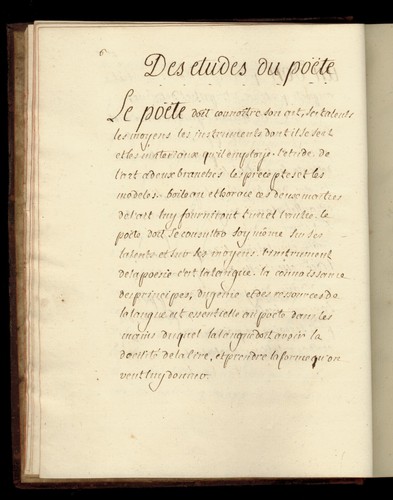 6
Des etudes du poëte
Le poëte doit connoitre son art, ses talents
les moyens les instruments dont il se sert
et les materiaux qu'il employe. l'etude de
l'art a deux branches les preceptes et les
modeles. boileau et horace ces deux maitres
de l'art luy fourniront l'un et l'autre. le
poëte doit se consulter soy même sur ses
talents et sur les moyens. l'instrument
de la poesie c'est la langue. la connoissance
des principes, du genie et des ressources de
la langue est essentielle au poëte dans les
mains duquel la langue doit avoir la
docilité de la cire, et prendre la forme qu'on
veut luy donner.